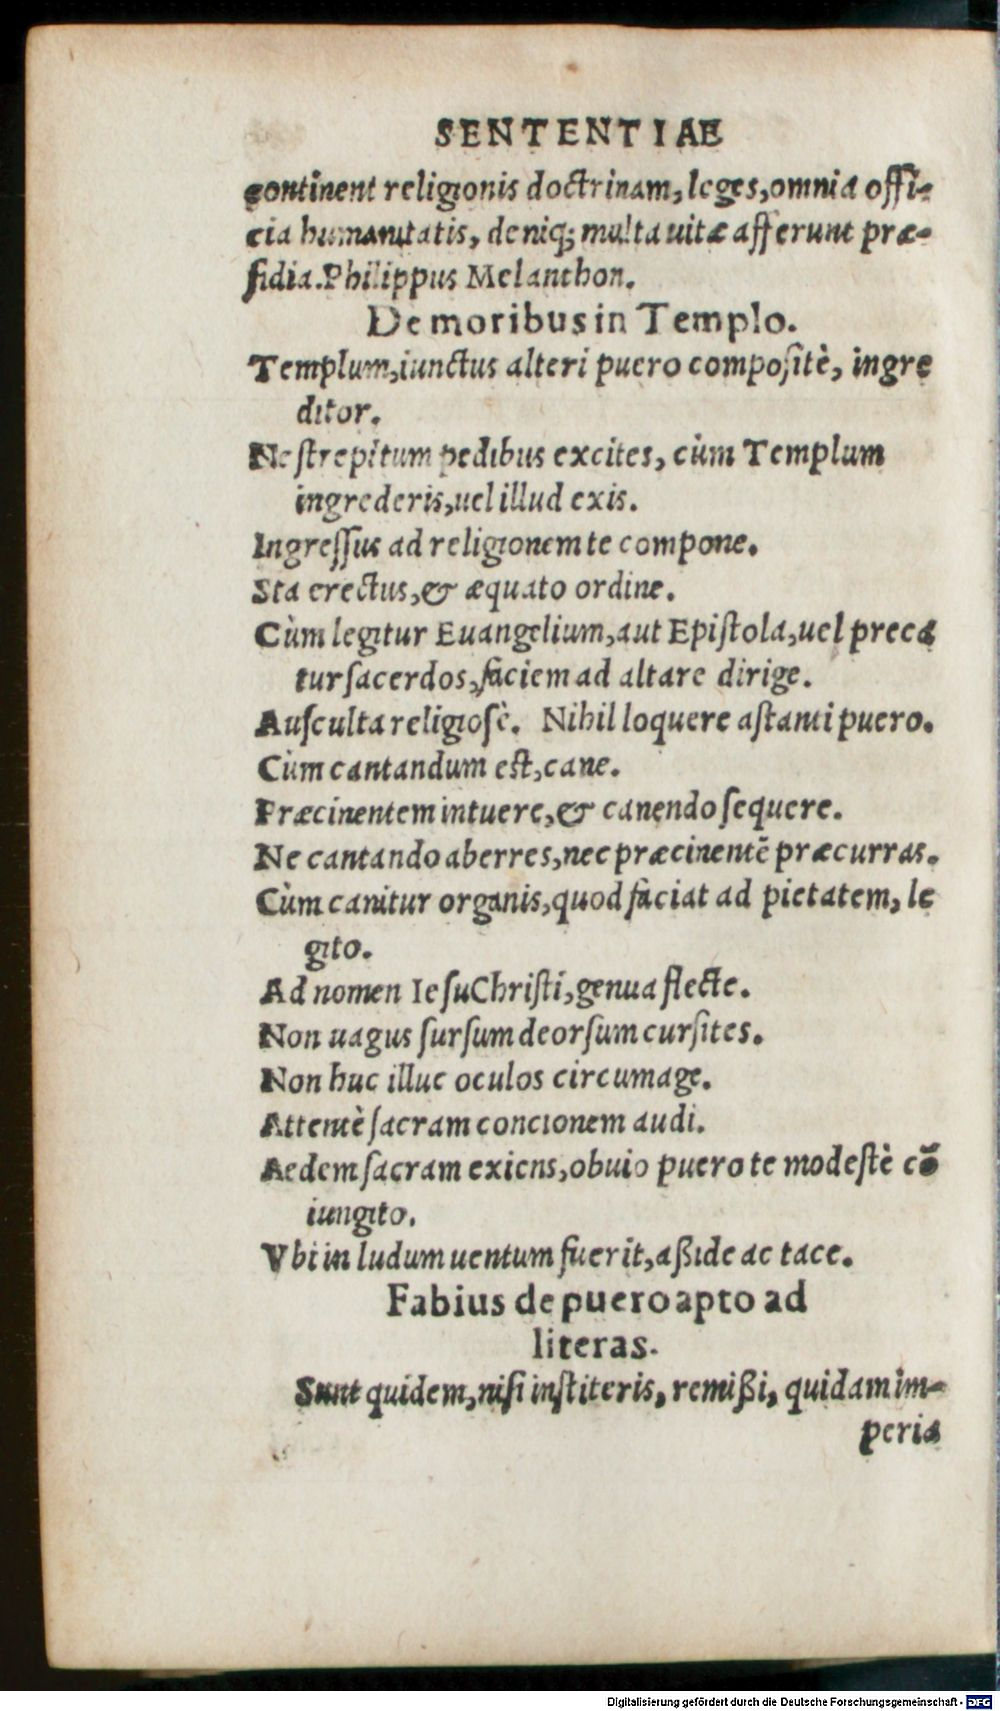 SENTENTIAE
continent religionis doctrinam, leges, omnia offi-
cia humanitatis, deniq; multa uitæ afferunt præ-
ſidia. Philippus Melanthon.
De moribus in Templo.
Templum, iunctus alteri puero compoſitè, ingre
ditor.
Ne ſtrepitum pedibus excites, cùm Templum
ingrederis, uel illud exis.
Ingreſſus ad religionem te compone.
Sta erectus, & æquato ordine.
Cùm legitur Euangelium, aut Epiſtola, uel preca
tur ſacerdos, faciem ad altare dirige.
Auſculta religioſè. Nihil loquere aſtanti puero.
Cùm cantandum eſt, cane.
Præcinentem intuere, & canendo ſequere.
Ne cantando aberres, nec præcinentē præcurras.
Cùm canitur organis, quod faciat ad pietatem, le
gito.
Ad nomen Ieſu Chriſti, genua flecte.
Non uagus ſurſum deorſum curſites.
Non huc illuc oculos circumage.
Attentè ſacram concionem audi.
Aedem ſacram exiens, obuio puero te modeſtè cō
iungito.
Vbi in ludum uentum fuerit, aßide ac tace.
Fabius de puero apto ad
literas.
Sunt quidem, niſi inſtiteris, remißi, quidam im-
peria
Digitalisierung gefördert durch die Deutsche Forschungsgemeinschaft - DFG